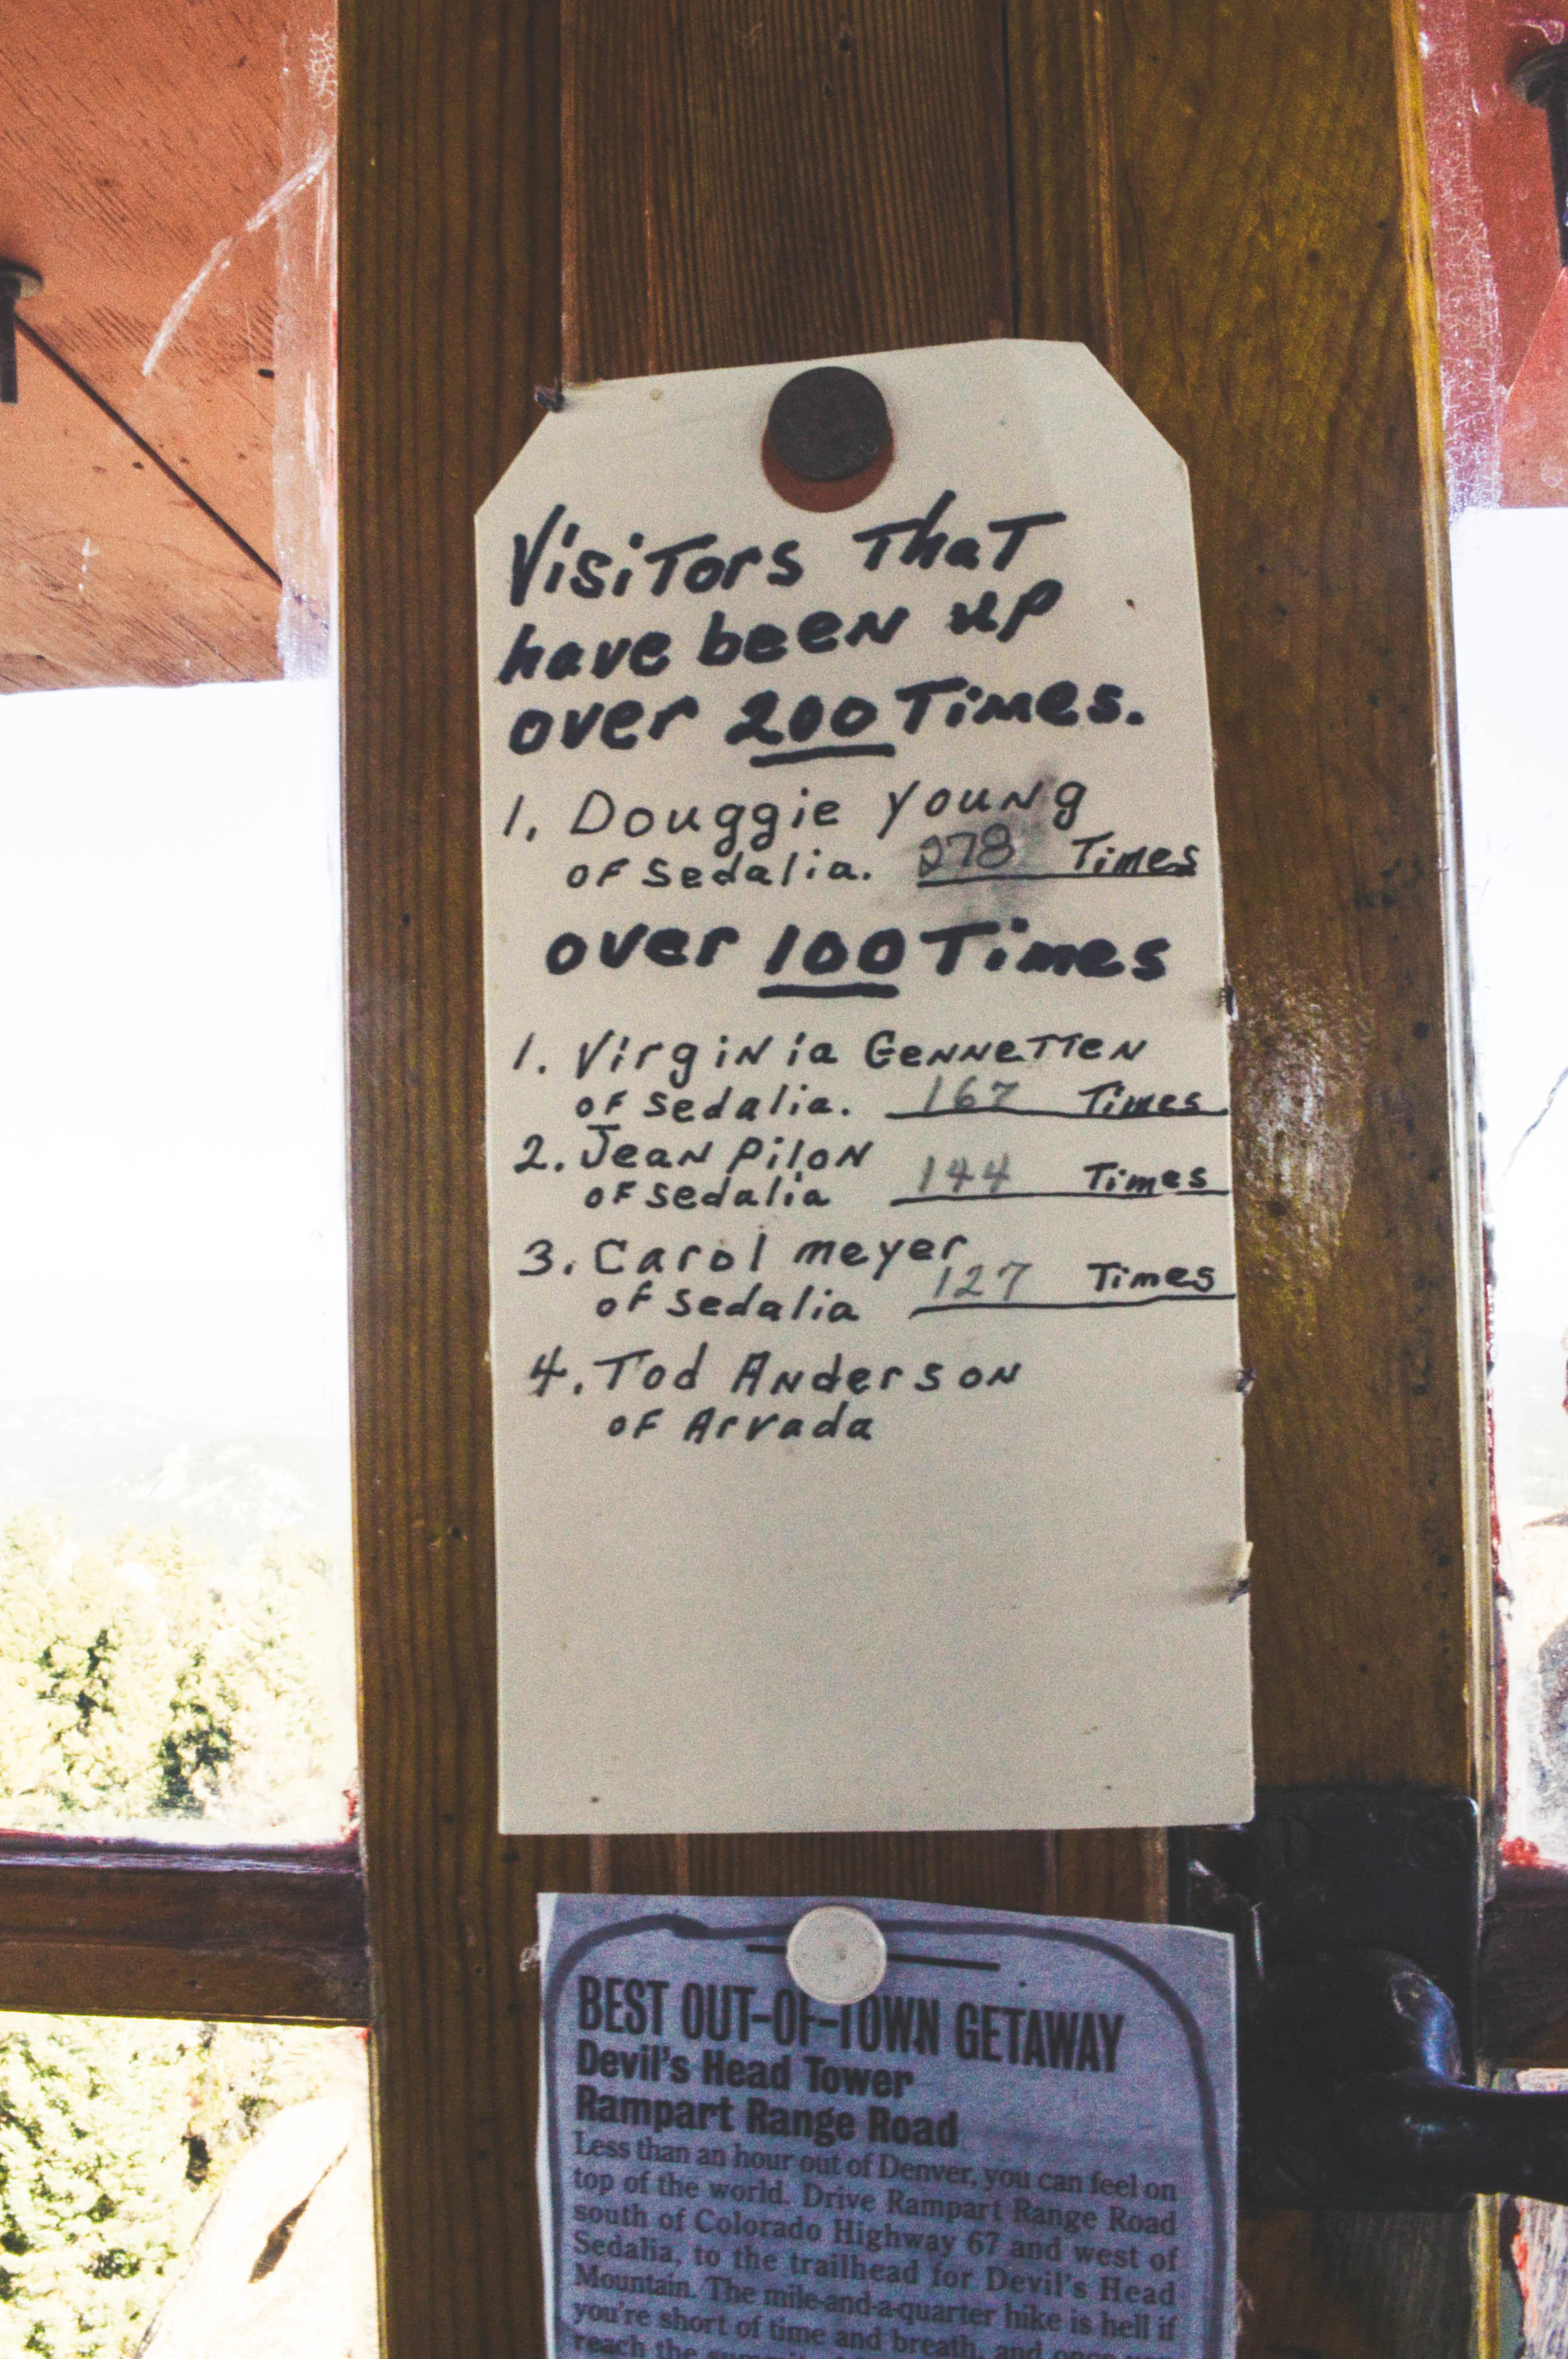 Visitors That
have been up
over 200 Times.
1. Douggie Young
of Sedalia. 278 Times
over 100 Times
1. Virginia Gennetten
of Sedalia. 167 Times
2. Jean Pilon
of Sedalia 144 Times
3. Carol meyer
of Sedalia 127 Times
4. Tod Anderson
of Arvada
BEST OUT-OF-TOWN GETAWAY
Devil's Head Tower
Rampart Range Road
Less than an hour out of Denver, you can feel on
top of the world. Drive Rampart Range Road
south of Colorado Highway 67 and west of
Sedalia, to the trailhead for Devil's Head
Mountain. The mile-and-a-quarter hike is hell if
you're short of time and breath, and once you
reach the